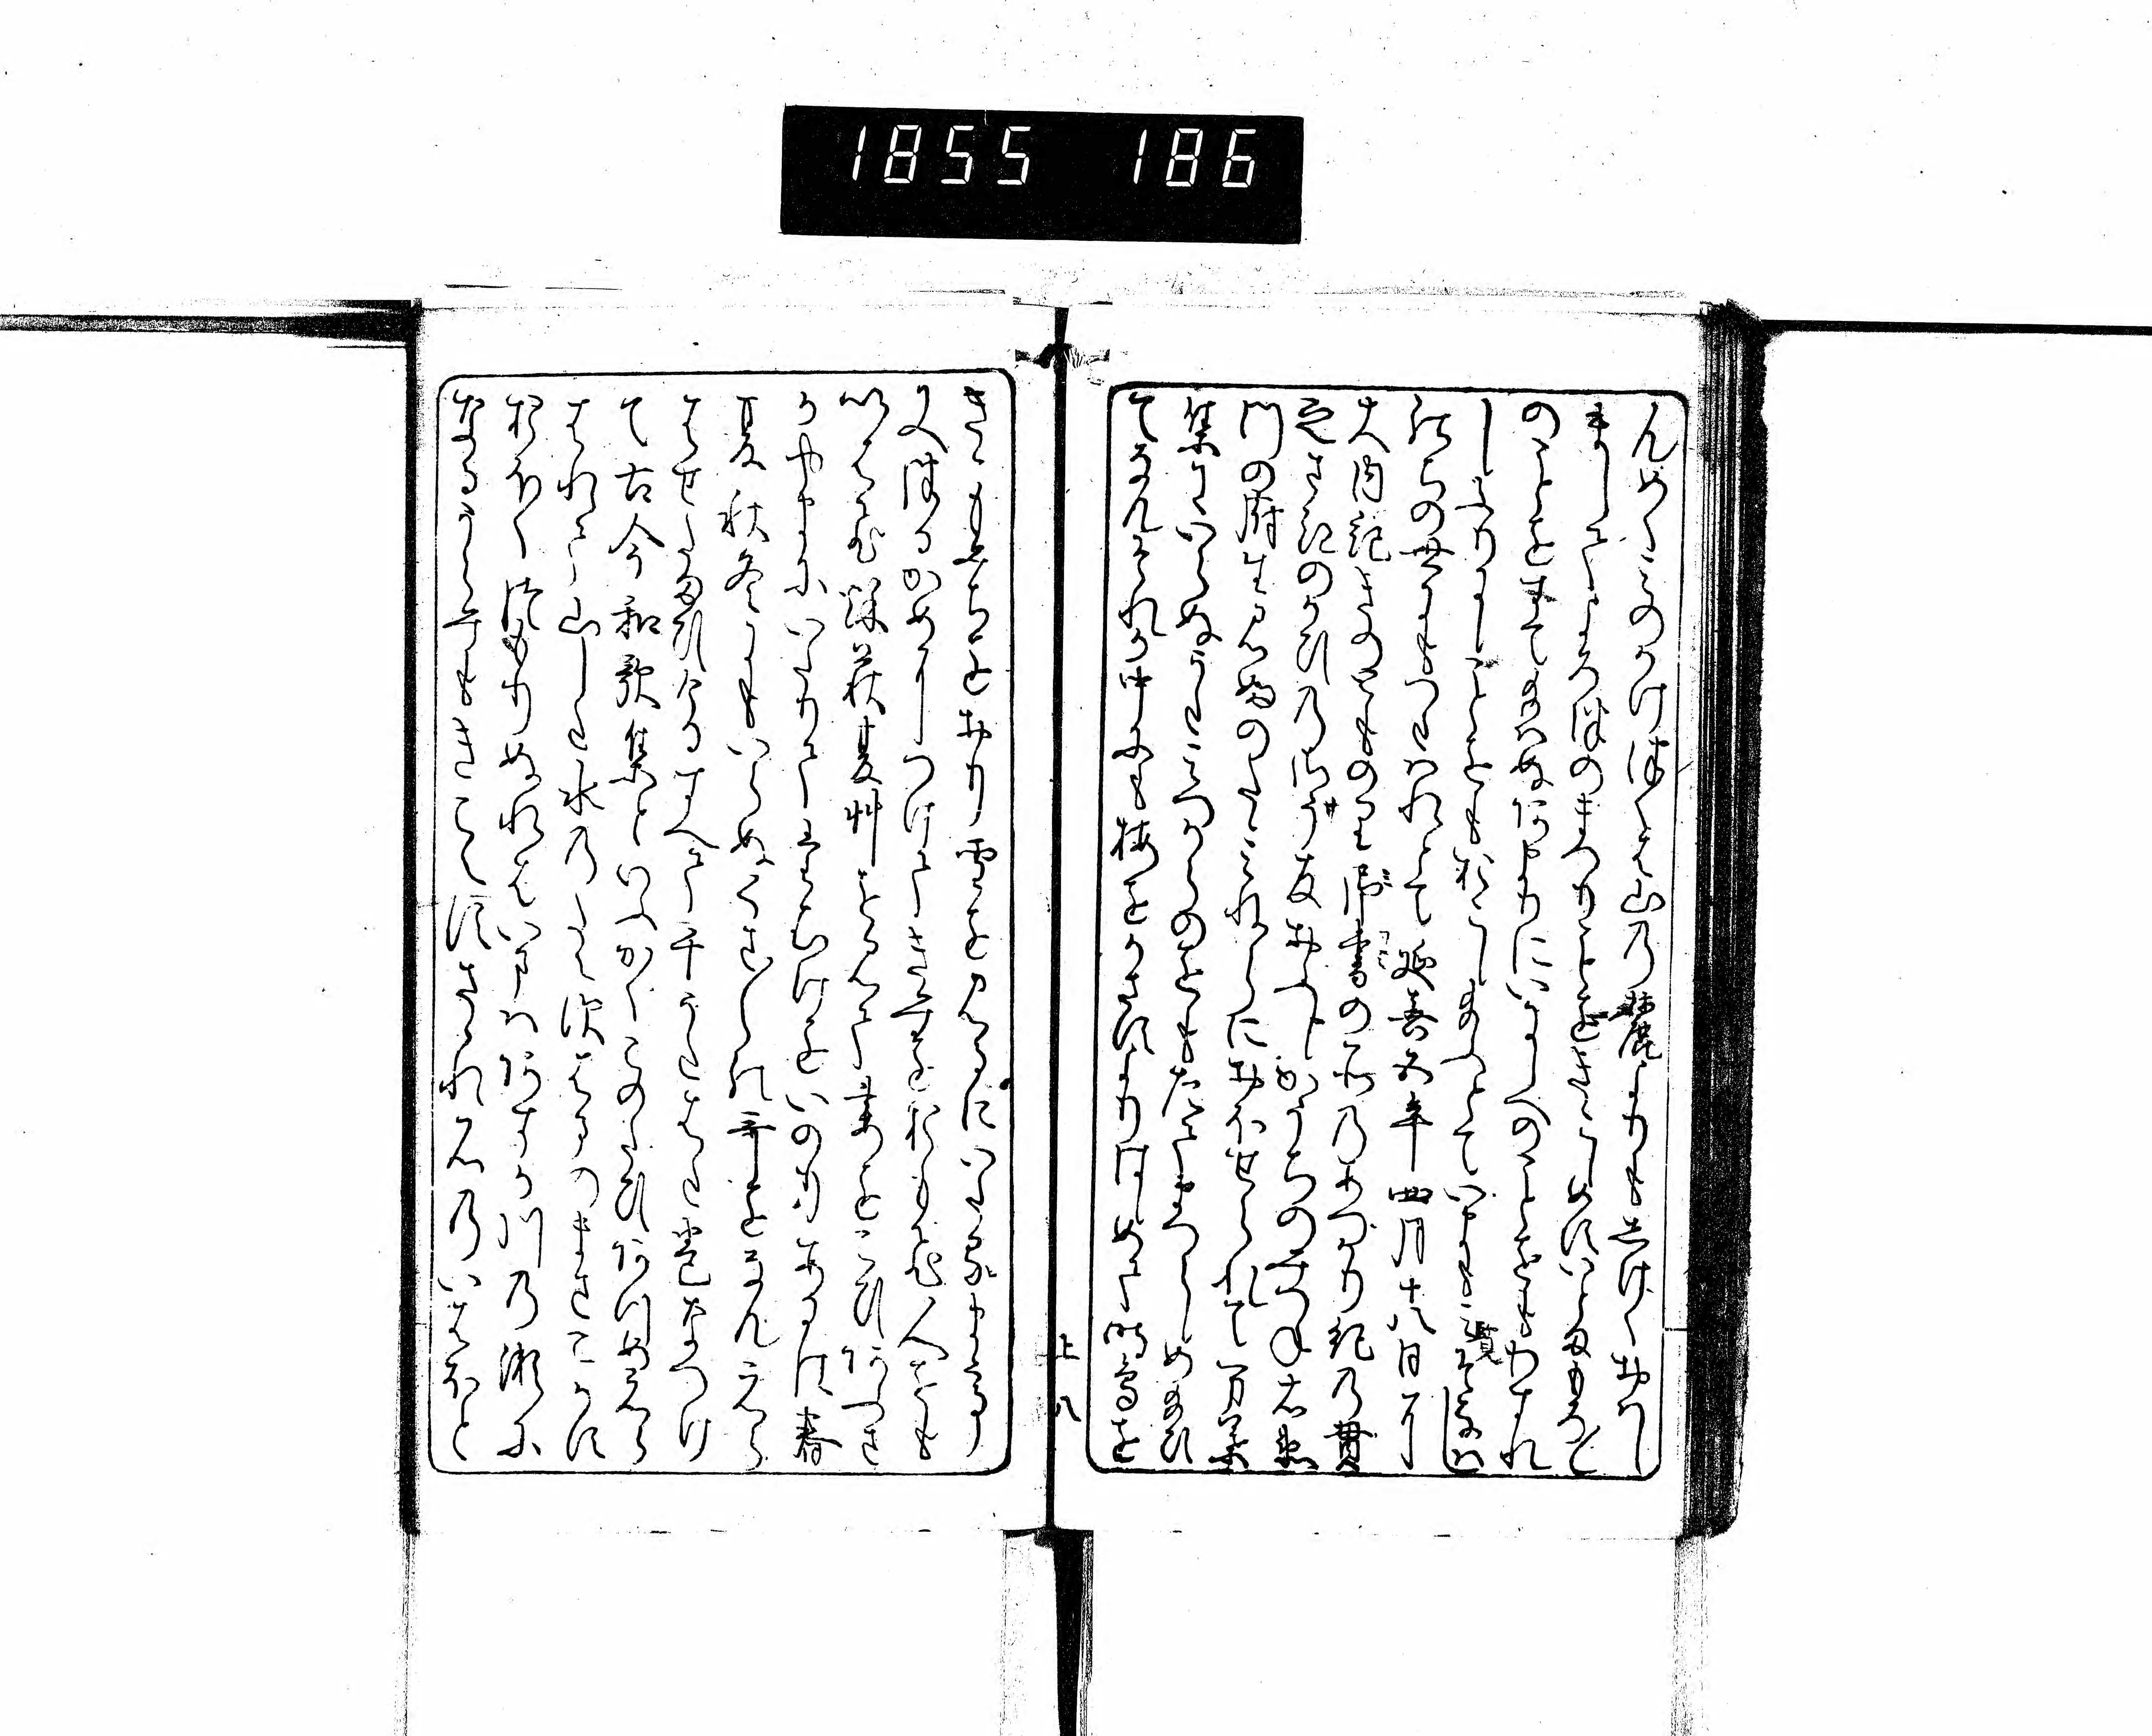 んめくみのかけつくは山の麓よりもしけくおはし
ましてよろつのまつりことをきこしめすいとまもろ〱
のことをすて給はぬあまりにいにしへのことをもわすれ
しふりにしことをもおこし給ふとていまもみそなはし
後の世にもつたはれとて延喜五年四月十八日に
大内記きのとものり御書の所のあつかり紀の貫
之さきのかひのさう官おふしかうちのみつね右衛
門の府生みふのたゝみねらにおほせられて万葉
集にいらぬうたみつからのをもたてまつらしめ給ひ
てなんそれか中にも梅をかさすよりはしめて時鳥を
上 八
きゝもみちをおり雪を見るにいたるまて
又つるかめにつけてきみをおもひ人をも
いはひ秋萩夏草を見て妻をこひあふさ
か山にいたりてたむけをいのりあるは春
夏秋冬にもいらぬくさ〱の哥をなんえら
はせ給ひけるすへて千うたはた巻なつけ
て古今和歌集といふかくこのたひあつめえら
はれて山した水のたえすはまのまさこかす
おほくつもりぬれはいまはあすか川の瀬に
なるうらみもきこえすさゝれ石のいはほと
1855 186